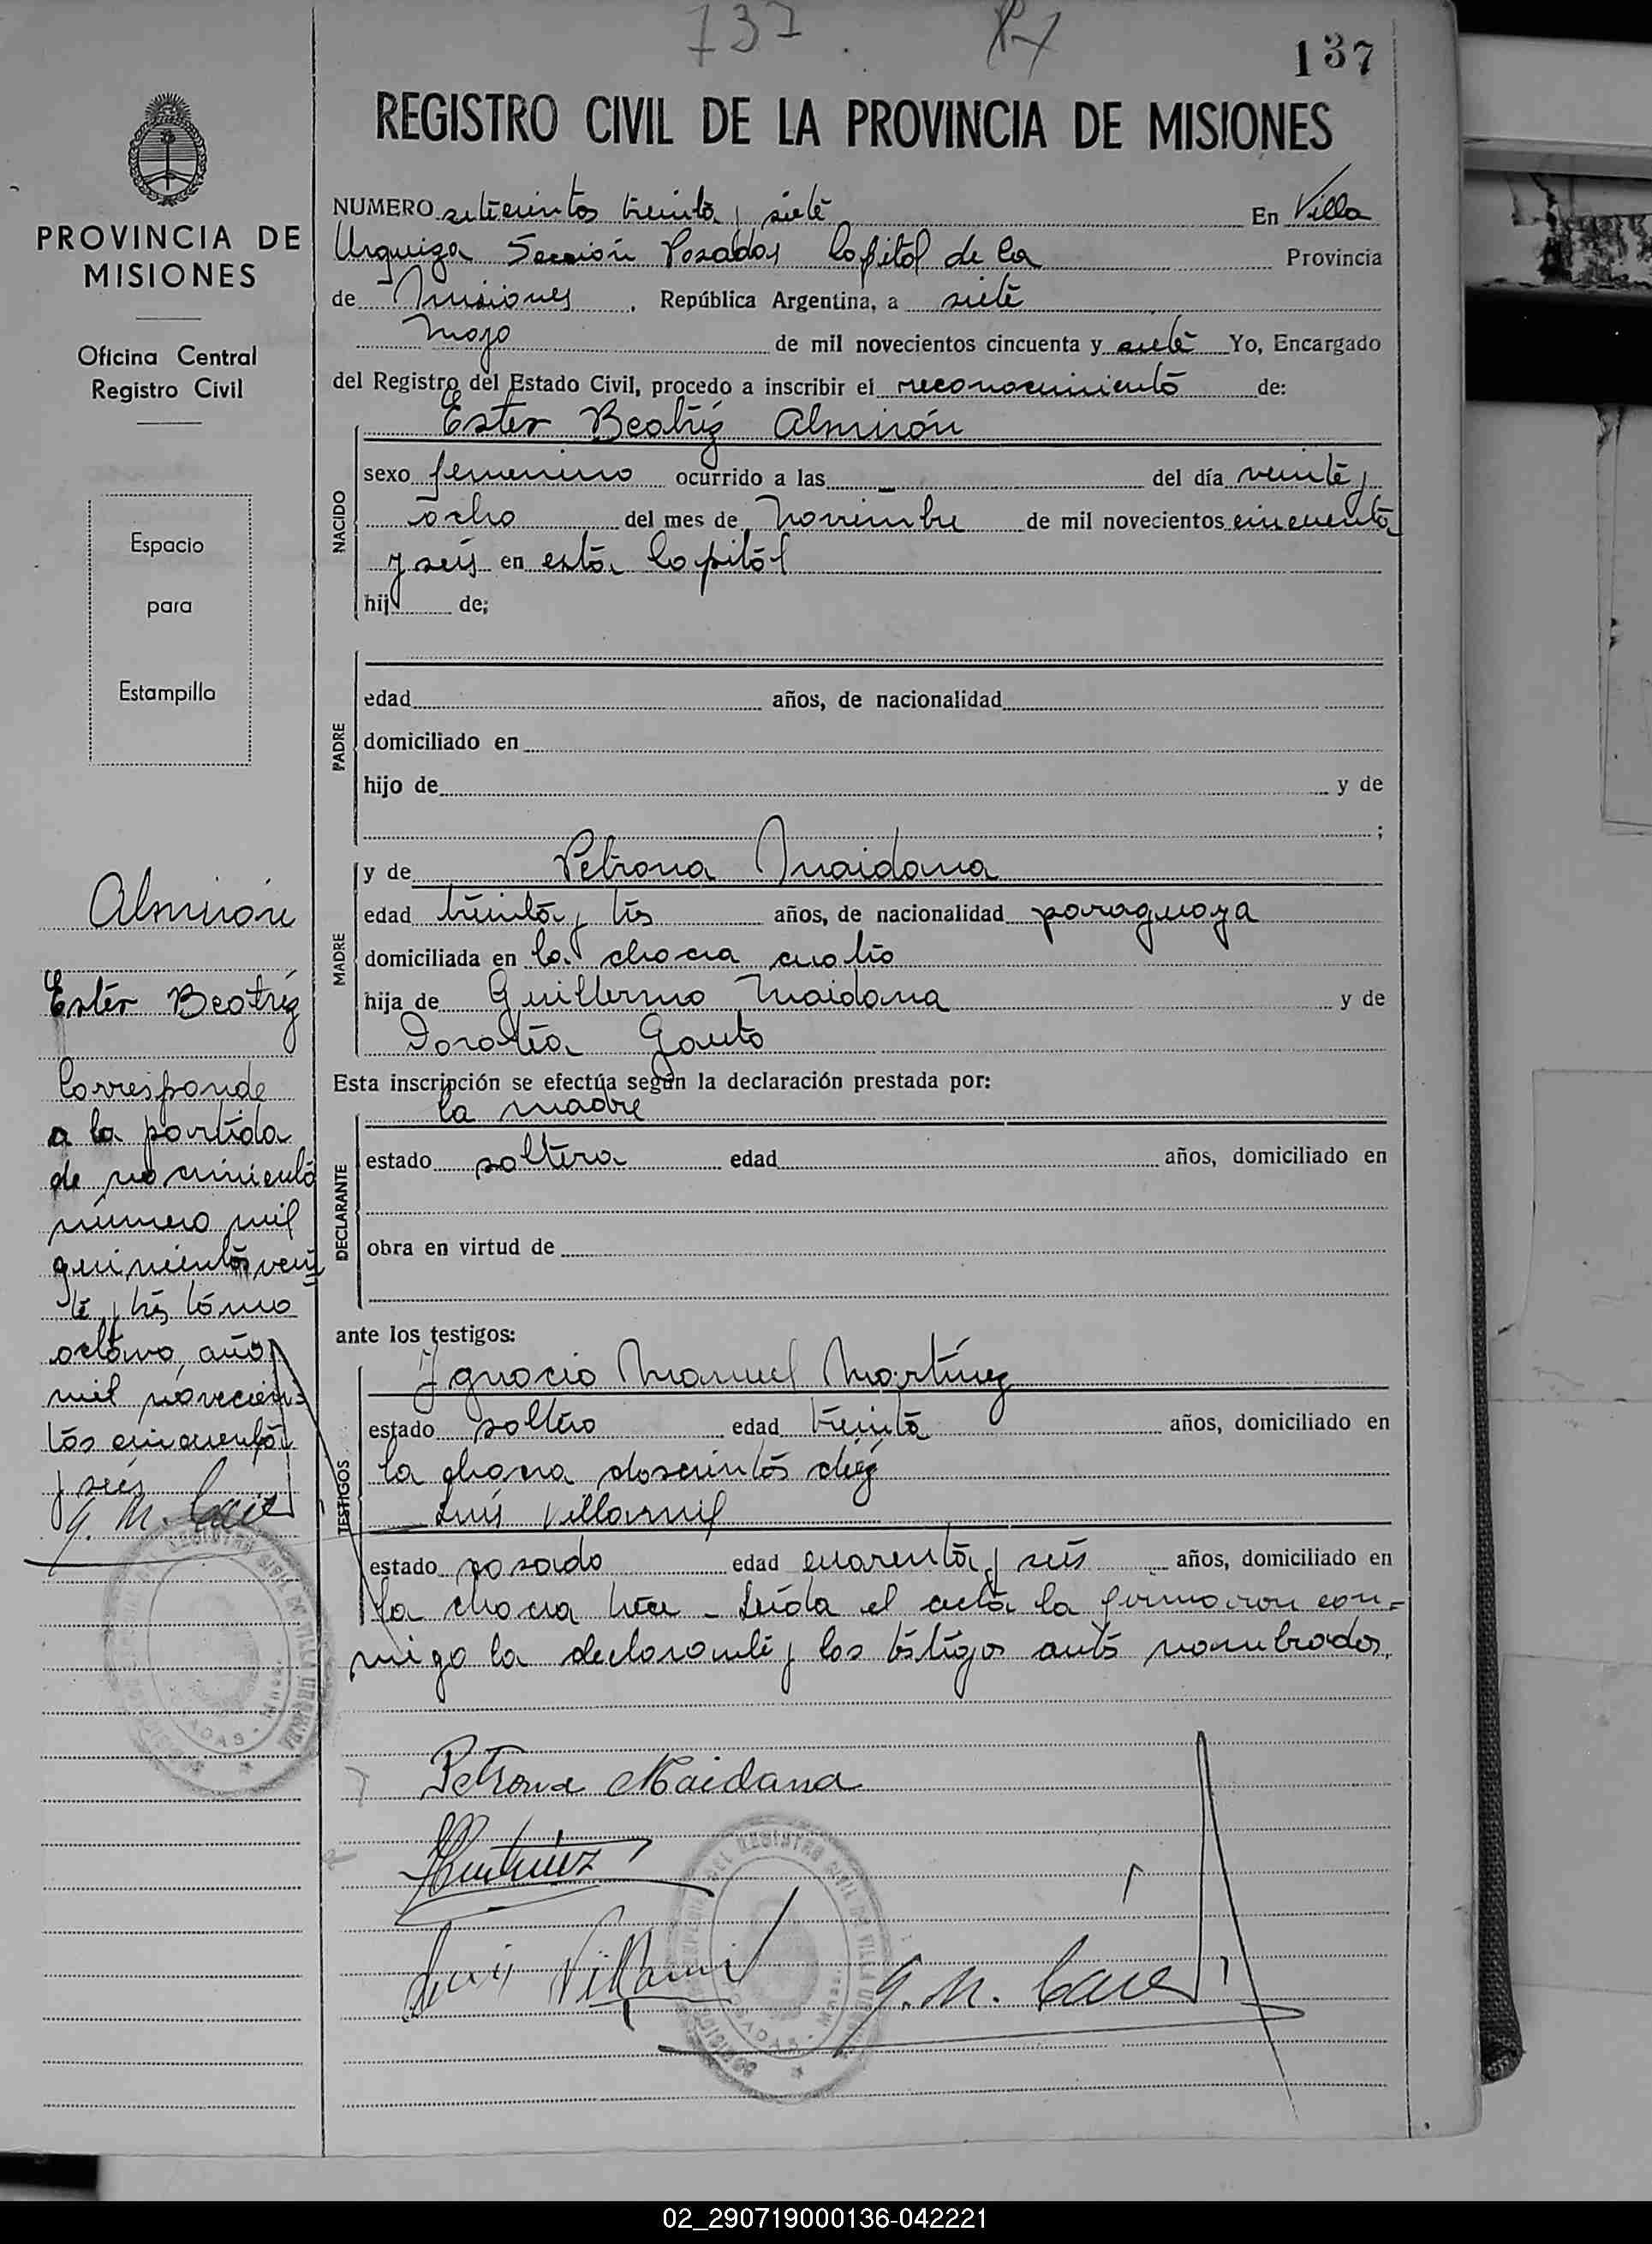 737
137
REGISTRO CIVIL DE LA PROVINCIA DE MISIONES
NUMERO setecientos treinta y siete En Villa
Urquiza Sección Posadas Capital de la Provincia
de Misiones, República Argentina, a siete
mayo de mil novecientos cincuenta y siete Yo, Encargado
del Registro del Estado Civil, procedo a inscribir el reconocimiento de:
NACIDO
Ester Beatriz Almirón
sexo femenino ocurrido a las — del día veinte y
ocho del mes de Noviembre de mil novecientos cincuenta
y seis en esta Capital
hij de;
PADRE
edad años, de nacionalidad
domiciliado en
hijo de y de
;
MADRE
y de Petrona Maidana
edad treinta y tres años, de nacionalidad paraguaya
domiciliada en la chacra cuatro
hija de Guillermo Maidana y de
Dorotea Gauto
Esta inscripción se efectúa según la declaración prestada por:
DECLARANTE
la madre
estado soltera edad años, domiciliado en
obra en virtud de
ante los testigos:
TESTIGOS
Ignacio Manuel Martínez
estado soltero edad treinta años, domiciliado en
la chacra doscientos diez
Luis Villamil
estado casado edad cuarenta y seis años, domiciliado en
la chacra tres - Leída el acta la firmaron con=
migo la declarante y los testigos antes nombrados.
Petrona Maidana
Martínez
Luis Villamil
G. N.
PROVINCIA DE
MISIONES
Oficina Central
Registro Civil
Espacio
para
Estampilla
Almirón
Ester Beatriz
Corresponde
a la partida
de nacimiento
número mil
quinientos vein=
te y tres, tomo
octavo, año
mil novecien=
tos cincuenta
y seis
02_290719000136-042221